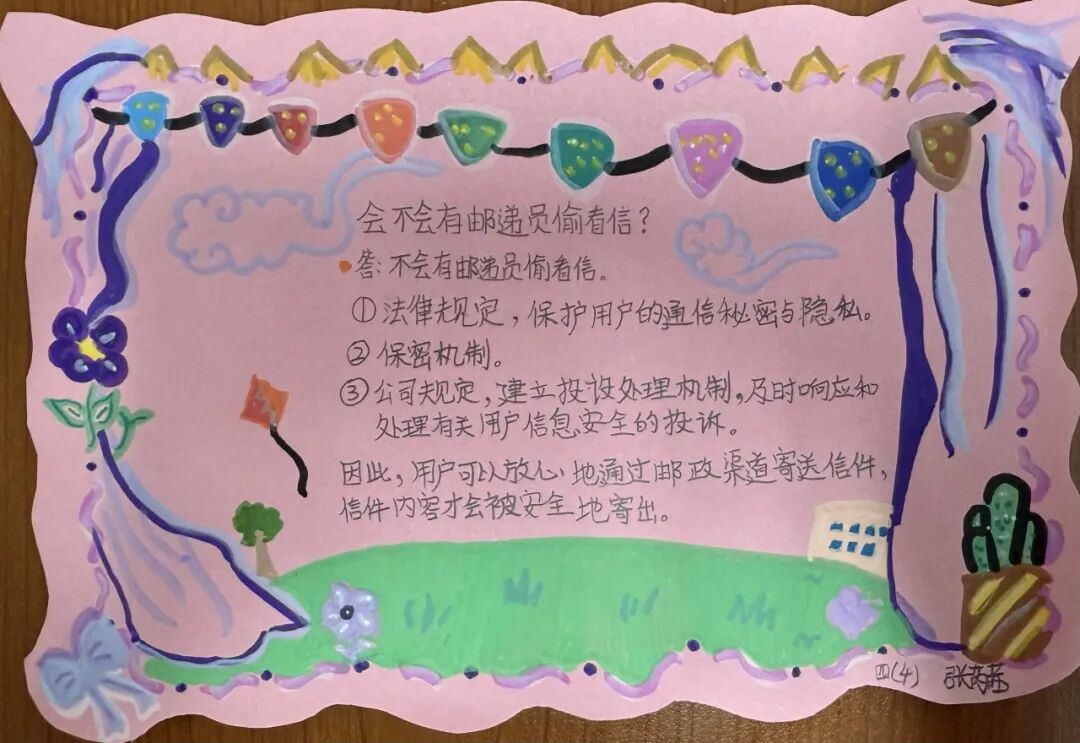 会不会有邮递员偷看信？
答：不会有邮递员偷看信。
①法律规定，保护用户的通信秘密与隐私。
②保密机制。
③公司规定，建立投诉处理机制，及时响应和
处理有关用户信息安全的投诉。
因此，用户可以放心地通过邮政渠道寄送信件，
信件内容才会被安全地寄出。
四(4) 张